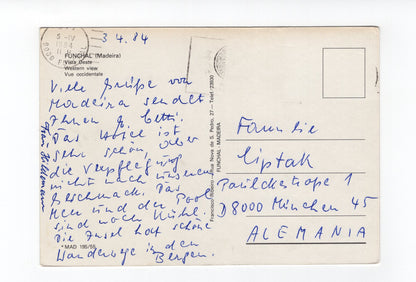 5-IV
1984
3.4.84
FUNCHAL (Madeira)
Vista Oeste
Western view
Vue occidentale
Viele Grüße von
Madeira sendet
Ihnen
Das Hotel ist
sehr schön, aber
die Verpflegung
nicht nach unserem
Geschmack. Das
Meer und der Pool
sind noch kühl.
Die Insel hat schöne
Wanderwege in den
Bergen.
* MAD 195/55
Francisco Ribeiro - Rua Nova de S. Pedro, 27 - Telef. 23930
FUNCHAL - MADEIRA
Familie
Liptak
Paulckestraße 1
D8000 München 45
ALEMANIA